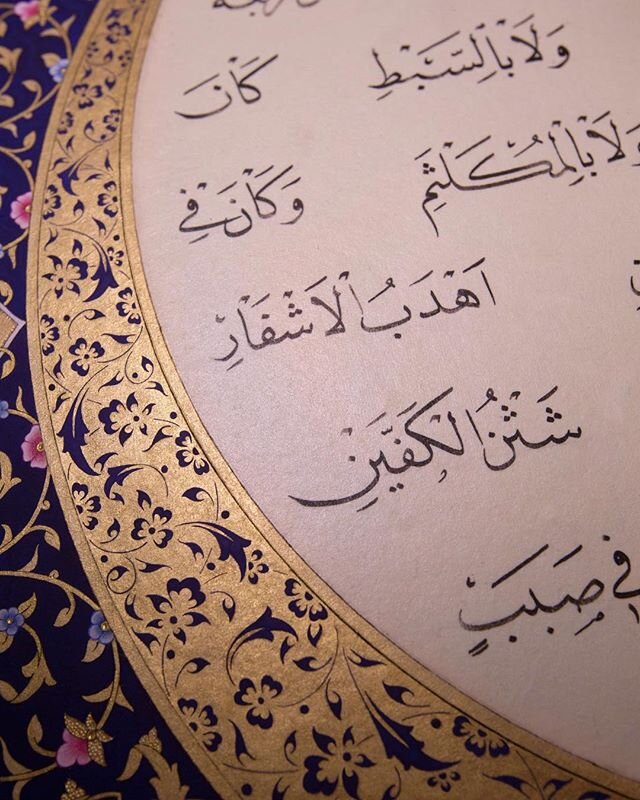 وَلَا بِالسَّبْطِ كَانَ
وَلَا بِالْمُكَلْثَمِ وَكَانَ فِي
اَهْدَبُ الْاَشْفَارِ
شَثْنُ الْكَفَّيْنِ
فِي صَبَبٍ